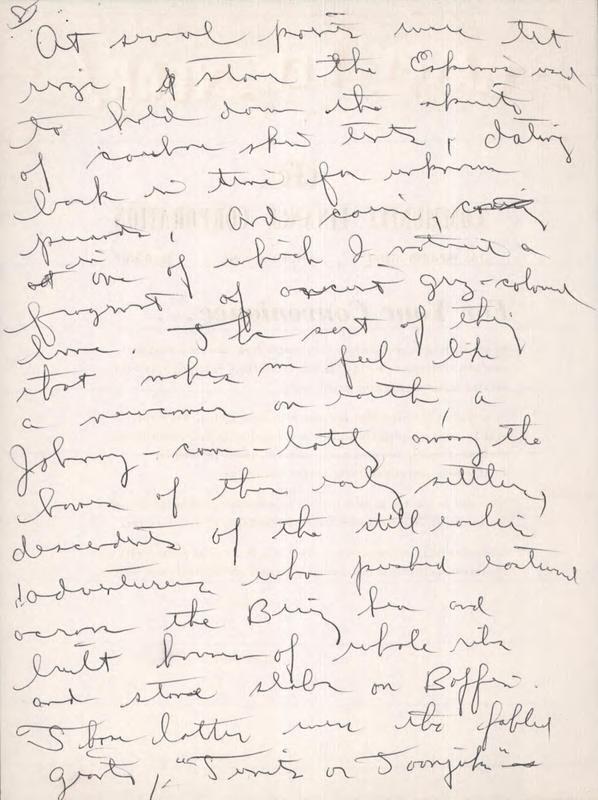 At several points were tent
rings, stones the Eskimos used
to hold down the skirts
of caribou skin tents, dating
back in time for unknown
periods. And
at one of which I noticed a
fragment of ancient grey-colored
bone. The sort of thing
that makes me feel like
a newcomer on earth, a
Johnny-come lately among the
bones of the early settlers,
descendents of the still earlier
adventurers who pushed eastward
across the Bering Sea and
built houses of whale ribs
and stone slabs on Baffin.
Those latter were the fabled
giants, "Tunits or Toonijuk"